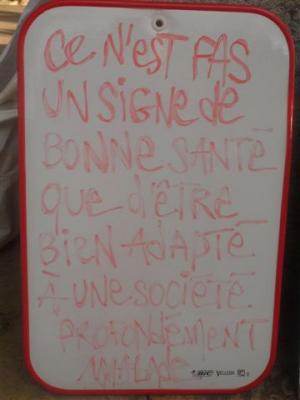 Ce N'est PAS
UN SIGNE de
BONNe SANTÉ
QUe d'êTRe
BIEN AdAPTÉ
À UNE SOCIÉTÉ
PROFONdéMENT
MALADe
VELLEDA